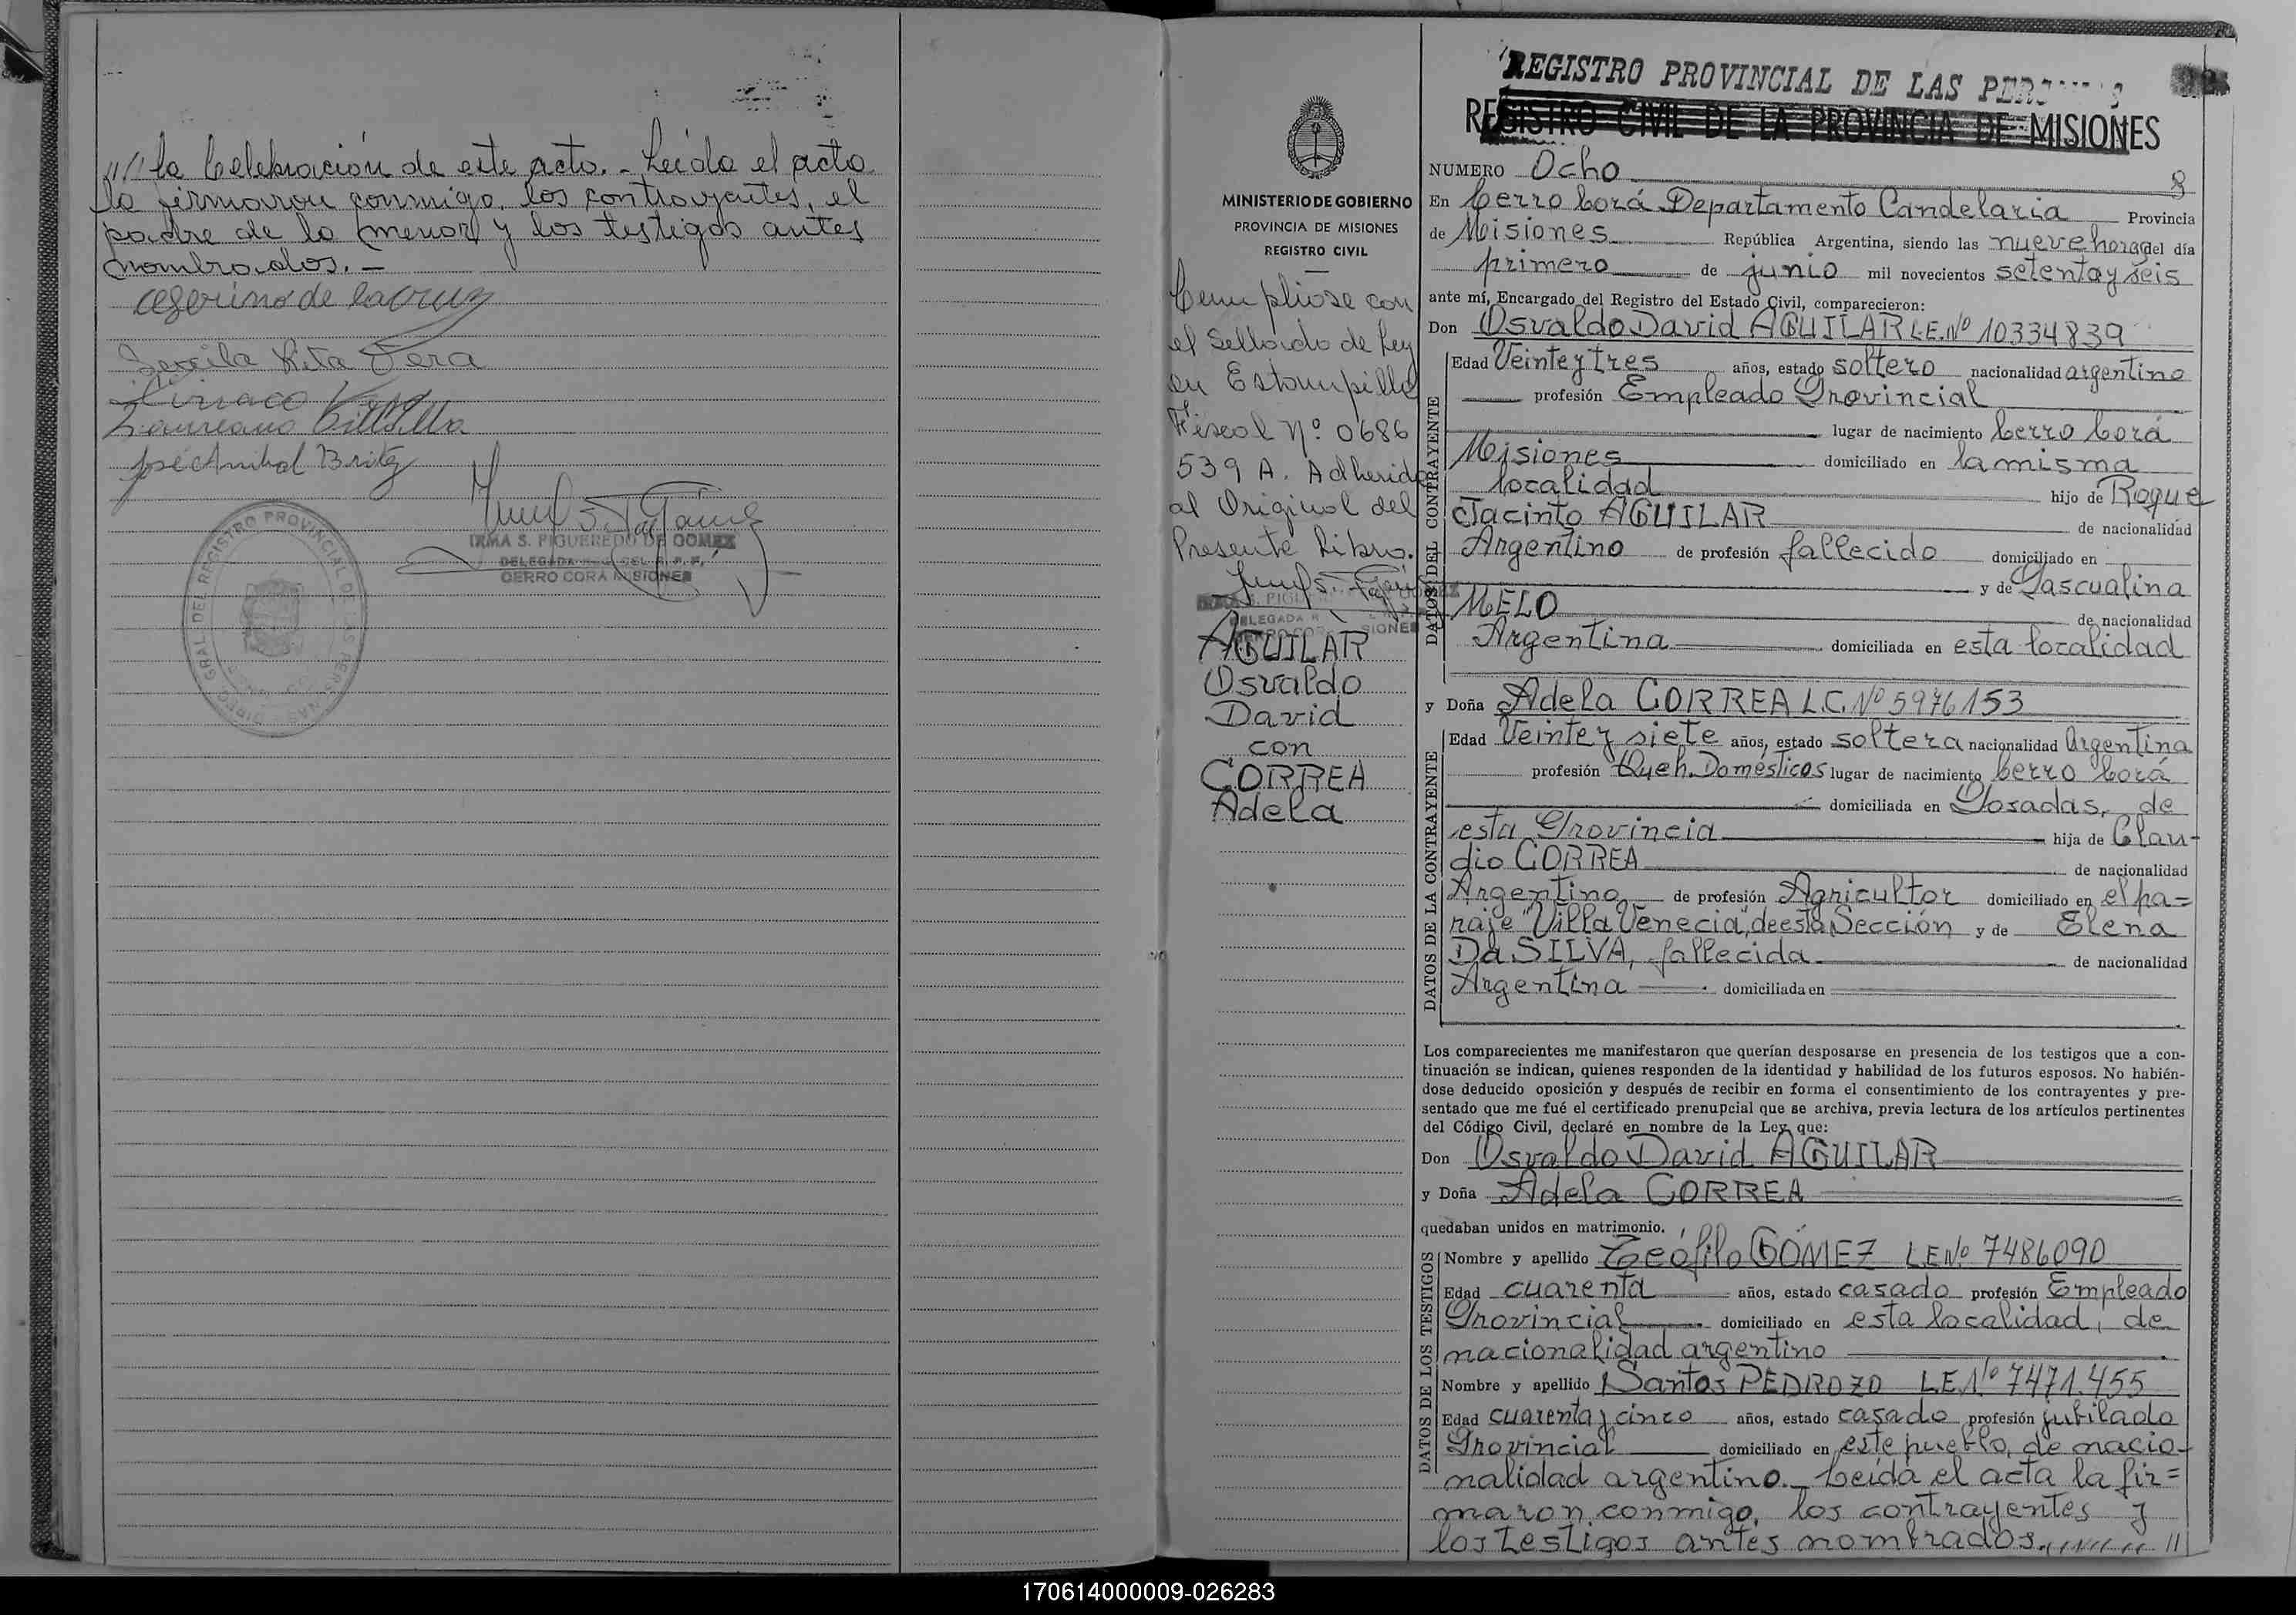 /// la Celebración de este acto. - Leída el acta
la firmaron conmigo, los contrayentes, el
padre de la (menor) y los testigos antes
nombrados. -
Ceferino de la Cruz
Rita Vera
Ciriaco
Laureano
José Anibal Britez
IRMA S. FIGUEREDO DE GOMEZ
DELEGADA
CERRO CORA MISIONES
DIREC. GRAL. DEL REGISTRO PROVINCIAL DE LAS PERSONAS
REGISTRO PROVINCIAL DE LAS PERSONAS
REGISTRO CIVIL DE LA PROVINCIA DE MISIONES
MINISTERIO DE GOBIERNO
PROVINCIA DE MISIONES
REGISTRO CIVIL
Cumpliose con
el Sellado de Ley
en Estampilla
Fiscal Nº 0686
539 A. Adherida
al Original del
Presente Libro.
AGUILAR
Osvaldo
David
con
CORREA
Adela
NUMERO Ocho 8
En Cerro Corá Departamento Candelaria Provincia
de Misiones República Argentina, siendo las nueve horas del día
primero de junio mil novecientos setenta y seis
ante mí, Encargado del Registro del Estado Civil, comparecieron:
Don Osvaldo David AGUILAR L.E. Nº 10334839
DATOS DEL CONTRAYENTE
Edad Veinte y tres años, estado soltero nacionalidad argentino
profesión Empleado Provincial
lugar de nacimiento Cerro Corá
Misiones domiciliado en la misma
localidad hijo de Roque
Jacinto AGUILAR de nacionalidad
Argentino de profesión fallecido domiciliado en
y de Pascualina
MELO de nacionalidad
Argentina domiciliada en esta localidad
y Doña Adela CORREA L.C. Nº 5976153
DATOS DE LA CONTRAYENTE
Edad Veinte y siete años, estado soltera nacionalidad Argentina
profesión Queh. Domésticos lugar de nacimiento Cerro Corá
domiciliada en Posadas, de
esta Provincia hija de Clau-
dio CORREA de nacionalidad
Argentino de profesión Agricultor domiciliado en el pa=
raje "Villa Venecia", de esta Sección y de Elena
Da SILVA, fallecida de nacionalidad
Argentina domiciliada en
Los comparecientes me manifestaron que querían desposarse en presencia de los testigos que a con-
tinuación se indican, quienes responden de la identidad y habilidad de los futuros esposos. No habién-
dose deducido oposición y después de recibir en forma el consentimiento de los contrayentes y pre-
sentado que me fué el certificado prenupcial que se archiva, previa lectura de los artículos pertinentes
del Código Civil, declaré en nombre de la Ley que:
Don Osvaldo David AGUILAR
y Doña Adela CORREA
quedaban unidos en matrimonio.
DATOS DE LOS TESTIGOS
Nombre y apellido Teófilo GÓMEZ L.E. Nº 7486090
Edad cuarenta años, estado casado profesión Empleado
Provincial domiciliado en esta localidad, de
nacionalidad argentino
Nombre y apellido Santos PEDROZO L.E. Nº 7471.455
Edad cuarenta y cinco años, estado casado profesión jubilado
Provincial domiciliado en este pueblo, de nacio-
nalidad argentino. Leída el acta la fir=
maron conmigo, los contrayentes y
los testigos antes nombrados.
170614000009-026283